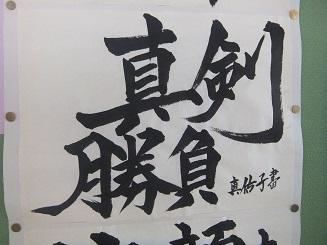 真剣
勝負
真佑子書